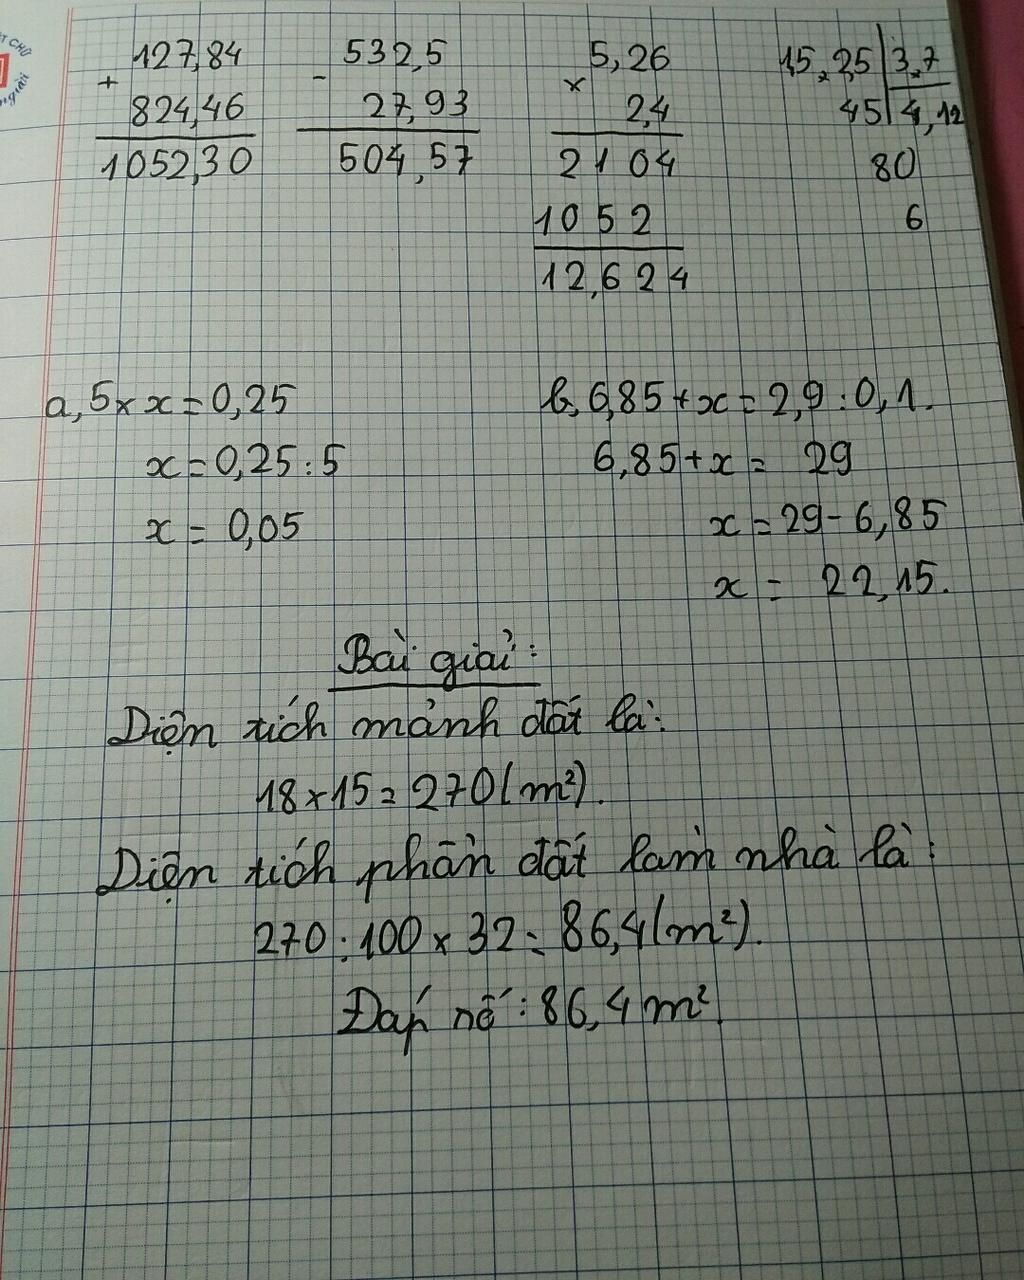 127,84
+
824,46
1052,30
532,5
-
27,93
504,57
5,26
×
2,4
2104
1052
12,624
15,25 3,7
45 4,12
80
6
a, 5 × x = 0,25
x = 0,25 : 5
x = 0,05
b, 6,85 + x = 2,9 : 0,1.
6,85 + x = 29
x = 29 - 6,85
x = 22,15.
Bài giải:
Diện tích mảnh đất là:
18 × 15 = 270 (m²).
Diện tích phần đất làm nhà là:
270 : 100 × 32 = 86,4 (m²).
Đáp số: 86,4 m²